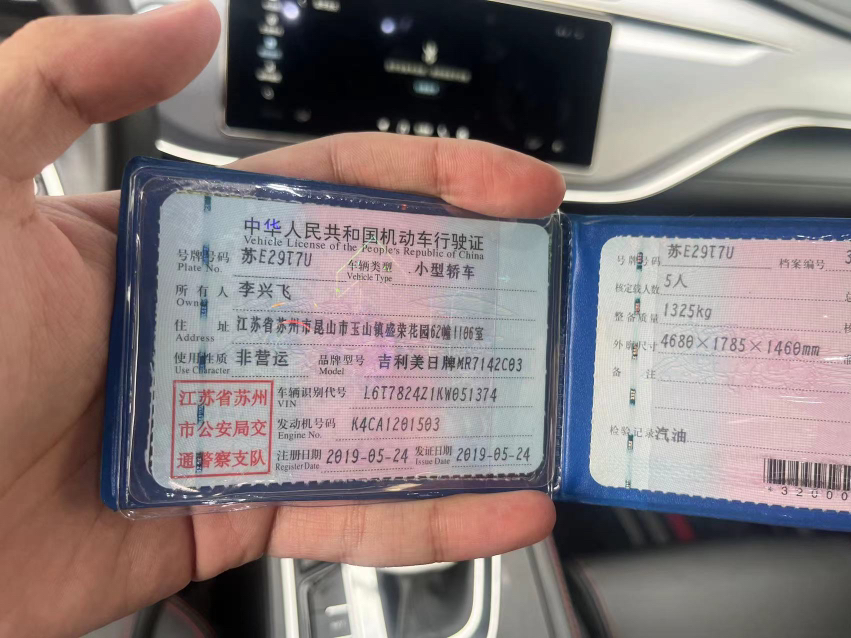 中华人民共和国机动车行驶证
Vehicle License of the People's Republic of China
号牌号码 苏E29T7U 车辆类型 小型轿车
Plate No. Vehicle Type
所有人 李兴飞
Owner
住址 江苏省苏州市昆山市玉山镇盛荣花园62幢1106室
Address
使用性质 非营运 品牌型号 吉利美日牌MR7142C03
Use Character Model
江苏省苏州
市公安局交
通警察支队
车辆识别代号 L6T7824Z1KW051374
VIN
发动机号码 K4CA1201503
Engine No.
注册日期 2019-05-24 发证日期 2019-05-24
Register Date Issue Date
号牌号码 苏E29T7U 档案编号 3
核定载人数 5人
整备质量 1325kg
外廓尺寸 4680×1785×1460mm
备注
检验记录 汽油
*32000